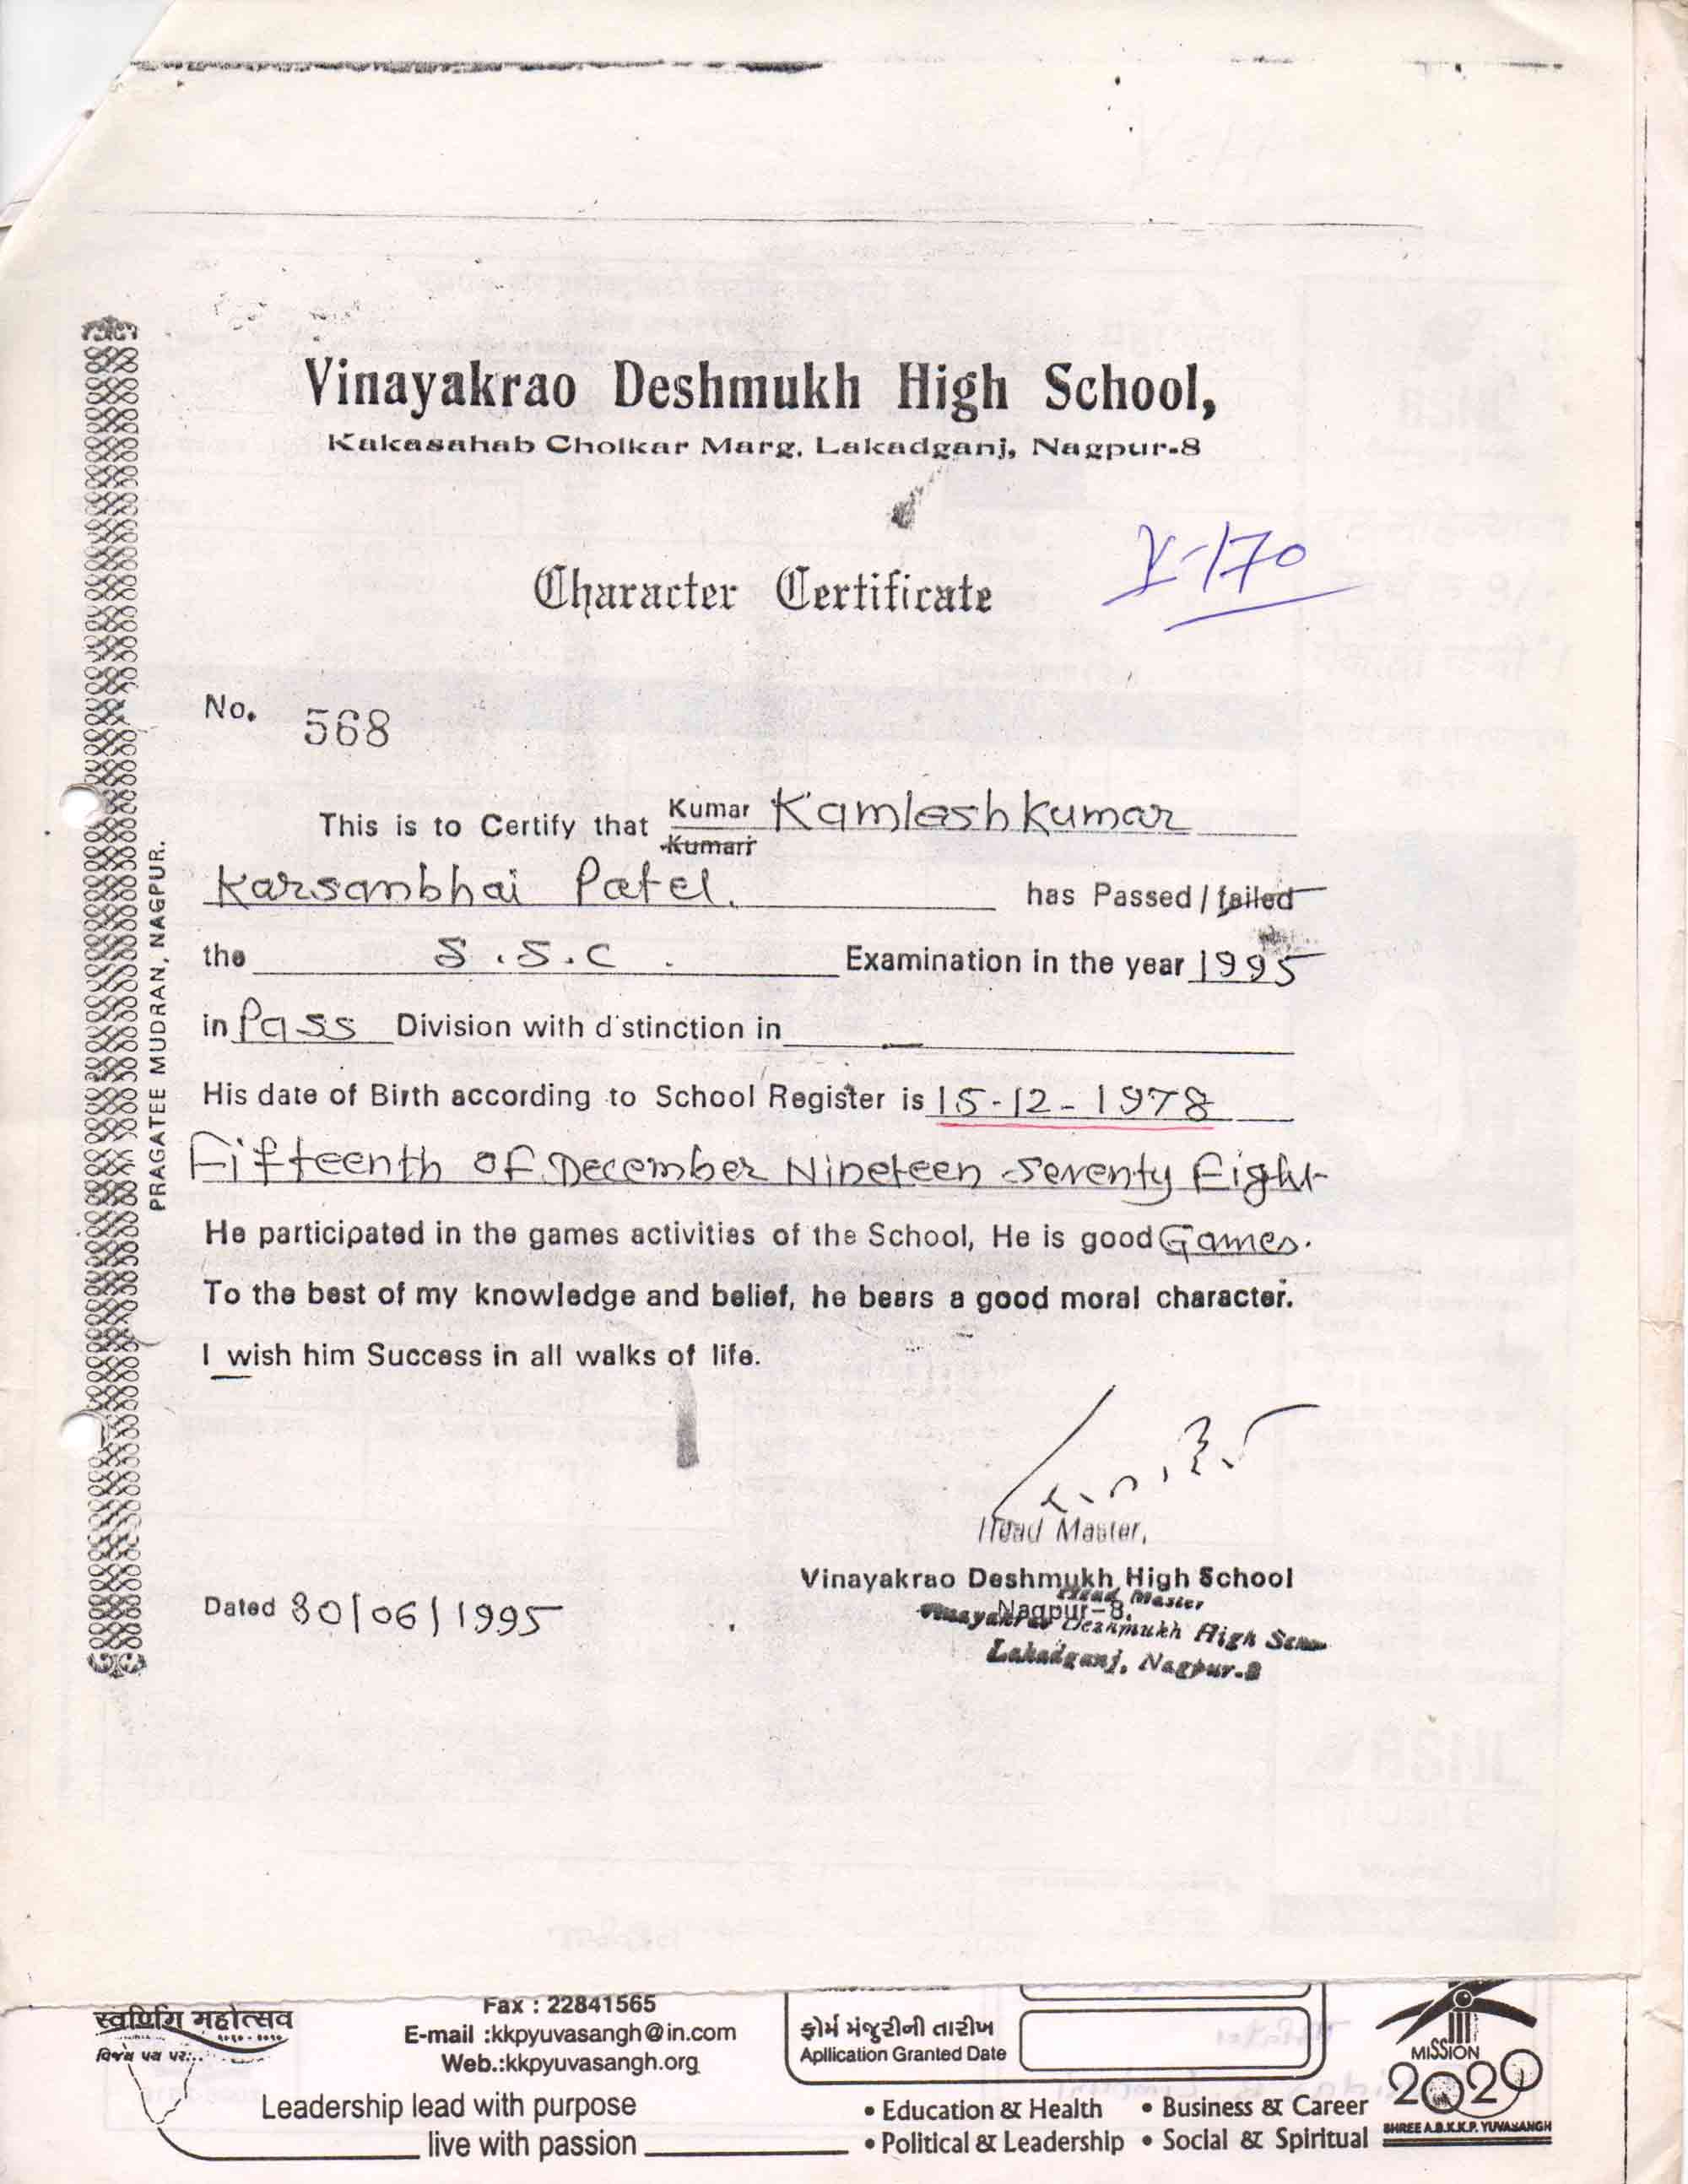 Vinayakrao Deshmukh High School,
Kakasahab Cholkar Marg, Lakadganj, Nagpur-8
V-170
Character Certificate
No. 568
This is to Certify that Kumar Kamlesh kumar
Kumari
Karsanbhai Patel. has Passed / failed
the S.S.C. Examination in the year 1995
in Pass Division with d stinction in —
His date of Birth according to School Register is 15-12-1978
Fifteenth of December Nineteen Seventy Eight
He participated in the games activities of the School, He is good Games.
To the best of my knowledge and belief, he bears a good moral character.
I wish him Success in all walks of life.
Head Master,
Vinayakrao Deshmukh High School
Nagpur-8.
Head Master
Vinayakrao Deshmukh High
Lakadganj, Nagpur-8
Dated 30/06/1995
PRAGATEE MUDRAN, NAGPUR.
स्वर्णिम महोत्सव
Fax : 22841565
E-mail :kkpyuvasangh@in.com
Web.:kkpyuvasangh.org
Leadership lead with purpose
live with passion
ફોર્મ મંજૂરીની તારીખ
Apllication Granted Date
• Education & Health • Business & Career
• Political & Leadership • Social & Spiritual
MISSION
2020
SHREE A.B.K.K.P. YUVASANGH